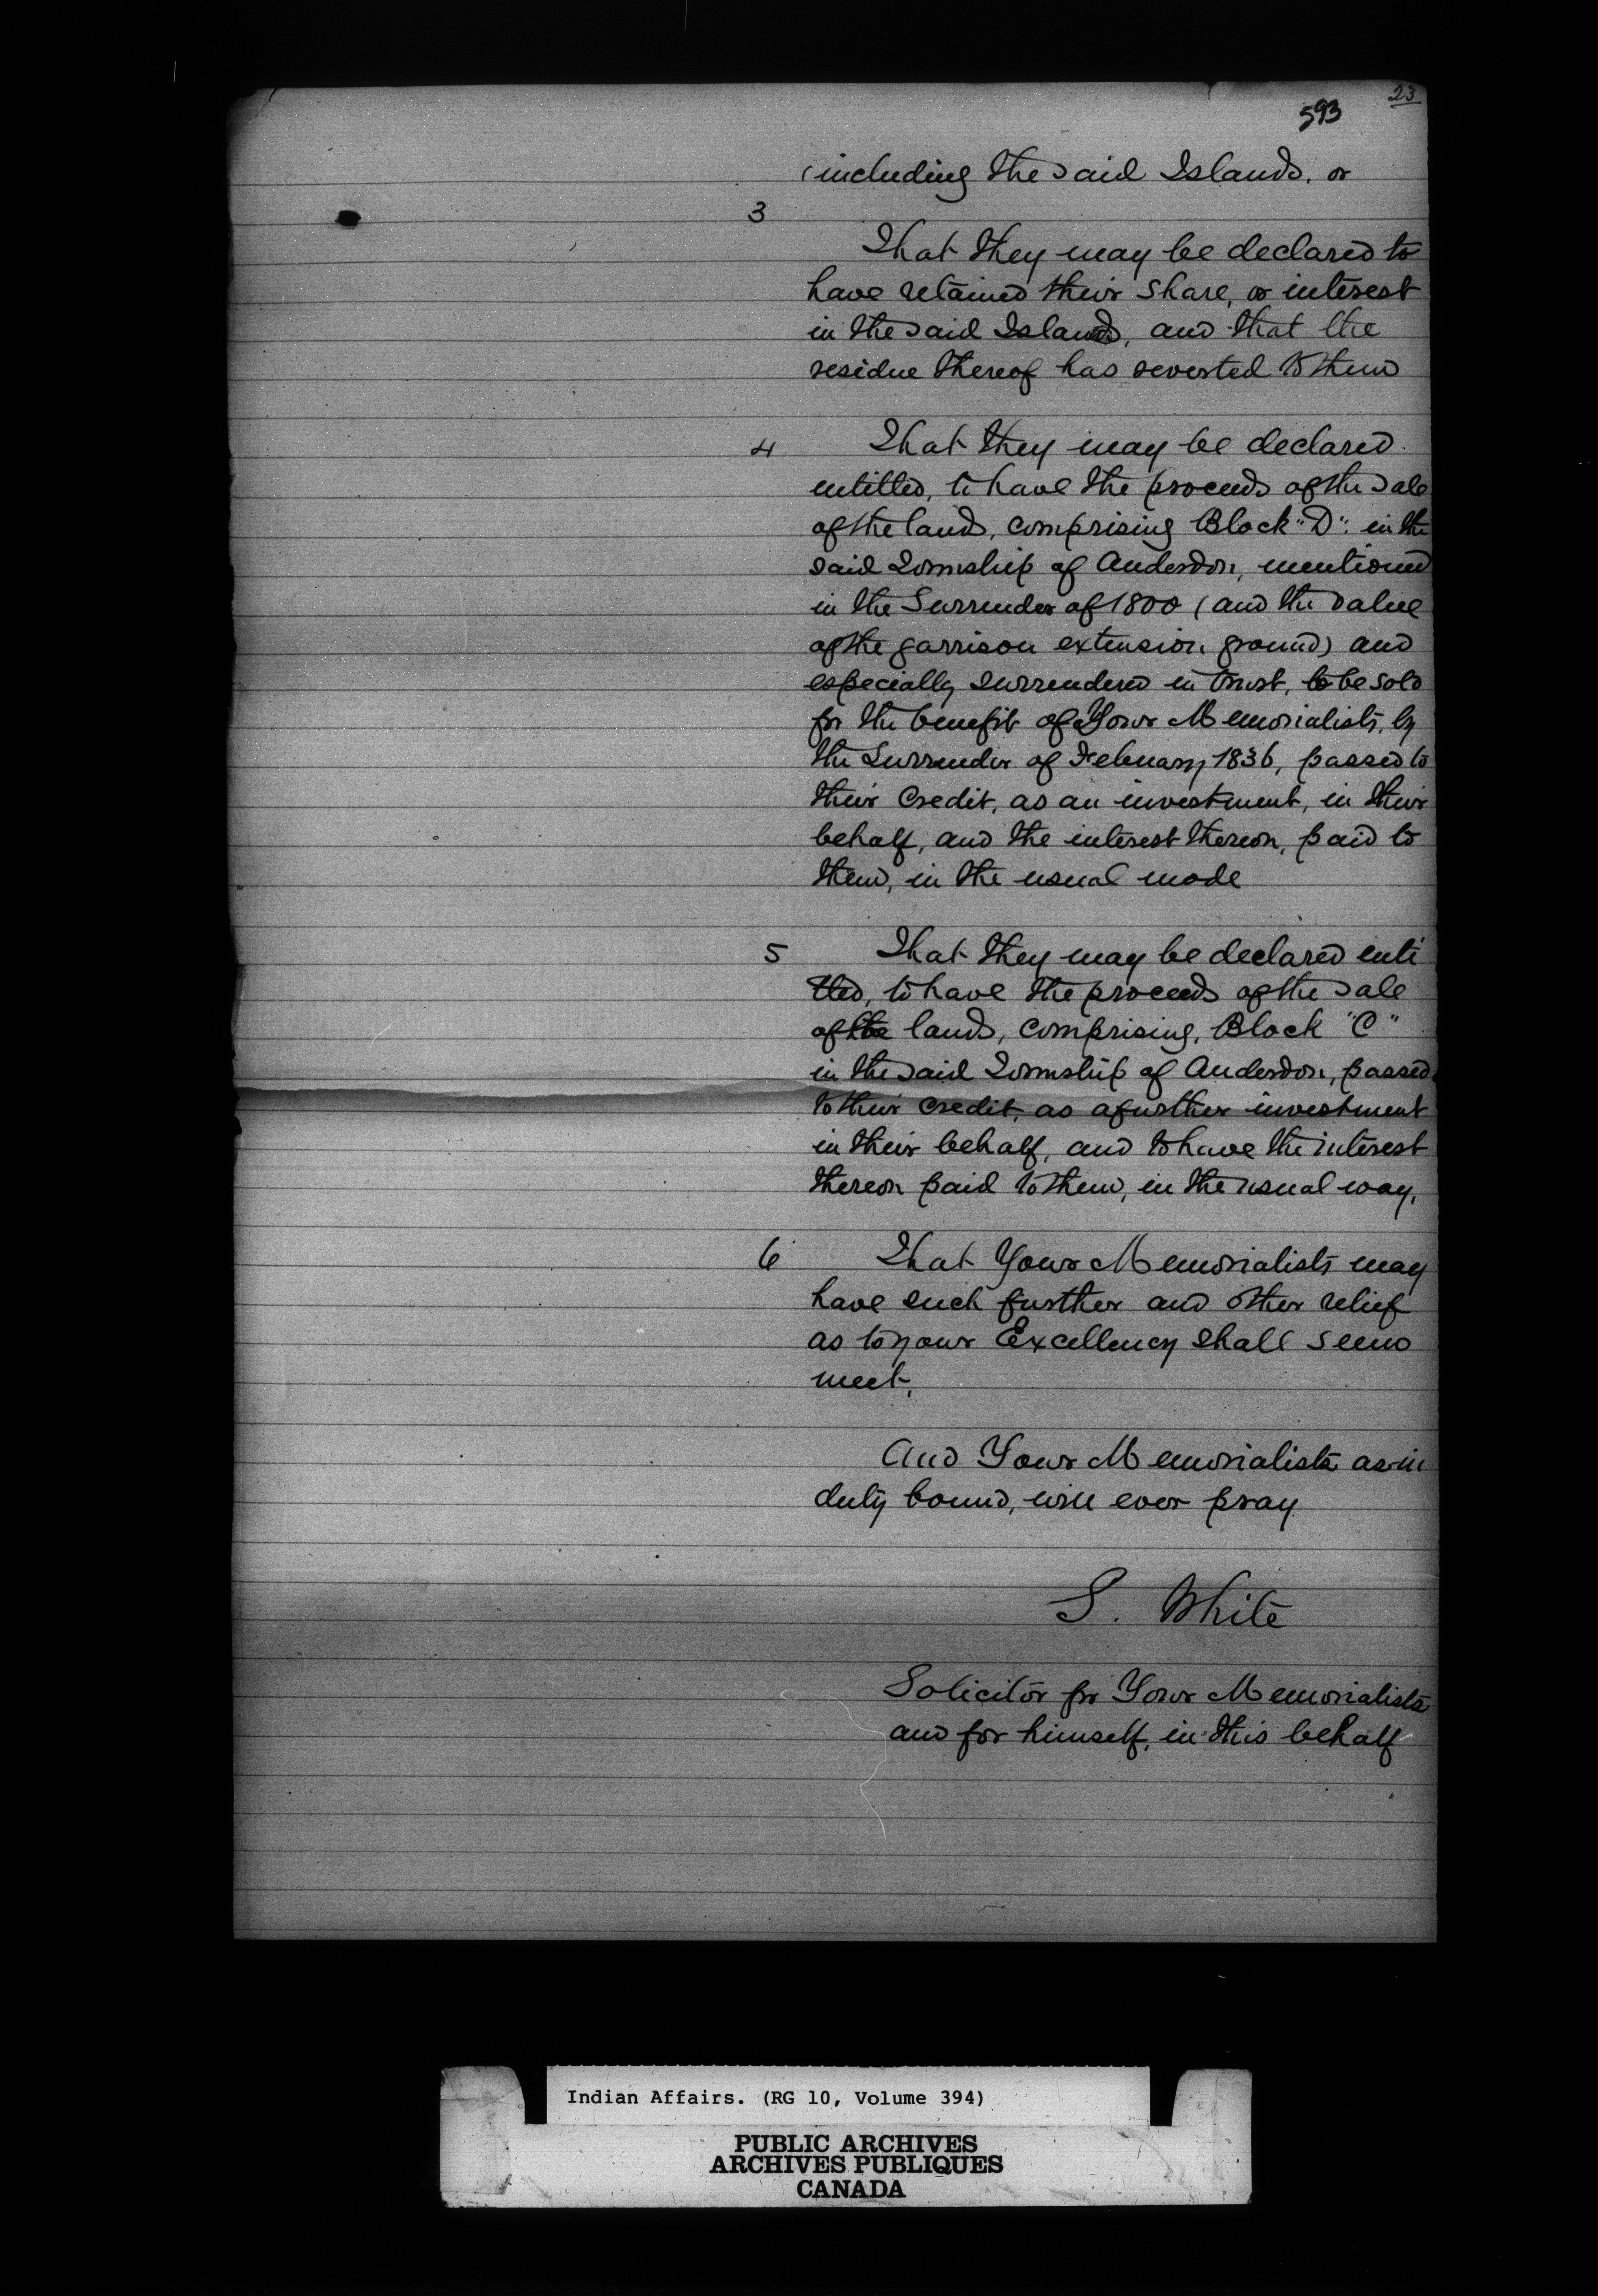 23
593
(including the said Islands, or
3
That they may be declared to
have retained their share, or interest
in the said Islands, and that the
residue thereof has reverted to them
4 That they may be declared
entitled, to have the proceeds of the sale
of the lands, comprising Block "D". in the
said Township of Anderdon, mentioned
in the Surrender of 1800 (and the value
of the garrison extension ground) and
especially surrendered in trust, to be sold
for the benefit of Your Memorialists, by
the Surrender of February 1836, passed to
their Credit, as an investment, in their
behalf, and the interest thereon, paid to
them, in the usual mode
5 That they may be declared enti
tled, to have the proceeds of the sale
of the lands, comprising, Block "C"
in the said Township of Anderdon, passed
to their credit, as a further investment
in their behalf, and to have the interest
thereon paid to them, in the usual way,
6 That Your Memorialists may
have such further and other relief
as to your Excellency shall seem
meet,
And Your Memorialists as in
duty bound, will ever pray
S. White
Solicitor for Your Memorialists
and for himself, in this behalf
Indian Affairs. (RG 10, Volume 394)
PUBLIC ARCHIVES
ARCHIVES PUBLIQUES
CANADA